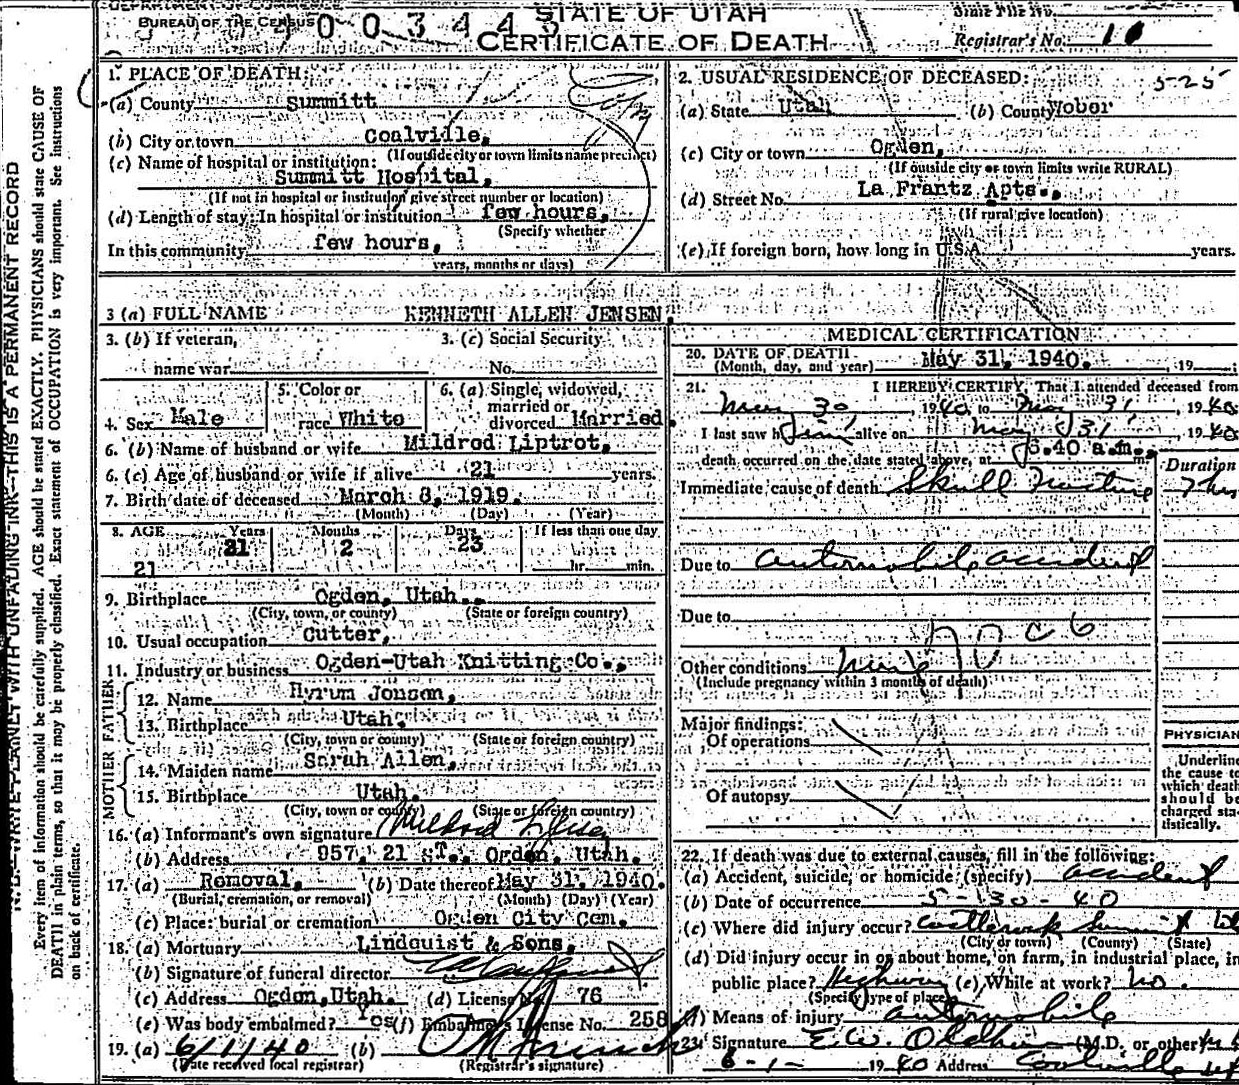 DEPARTMENT OF COMMERCE
BUREAU OF THE CENSUS
STATE OF UTAH
CERTIFICATE OF DEATH
State File No.
Registrar's No. 10
1. PLACE OF DEATH:
(a) County Summitt
(b) City or town Coalville,
(If outside city or town limits name precinct)
(c) Name of hospital or institution:
Summitt Hospital,
(If not in hospital or institution give street number or location)
(d) Length of stay: In hospital or institution few hours,
(Specify whether
In this community few hours,
years, months or days)
2. USUAL RESIDENCE OF DECEASED: 5-25
(a) State Utah (b) County Weber
(c) City or town Ogden,
(If outside city or town limits write RURAL)
(d) Street No. La Frantz Apts.,
(If rural give location)
(e) If foreign born, how long in U.S.A. years.
3 (a) FULL NAME KENNETH ALLEN JENSEN.
3. (b) If veteran, name war
3. (c) Social Security No.
4. Sex Male
5. Color or race White
6. (a) Single, widowed, married or divorced Married.
6. (b) Name of husband or wife Mildred Liptrot,
6. (c) Age of husband or wife if alive 21 years.
7. Birth date of deceased March 8, 1919.
(Month) (Day) (Year)
8. AGE Years Months Days If less than one day
21 2 23
21 hr. min.
9. Birthplace Ogden, Utah.
(City, town, or county) (State or foreign country)
10. Usual occupation Cutter,
11. Industry or business Ogden-Utah Knitting Co.,
FATHER
12. Name Hyrum Jensen,
13. Birthplace Utah.
(City, town or county) (State or foreign country)
MOTHER
14. Maiden name Sarah Allen,
15. Birthplace Utah.
(City, town or county) (State or foreign country)
16. (a) Informant's own signature Mildred Jensen
(b) Address 957. 21 ST., Ogden, Utah.
17. (a) Removal, (b) Date thereof May 31, 1940.
(Burial, cremation, or removal) (Month) (Day) (Year)
(c) Place: burial or cremation Ogden City Cem.
18. (a) Mortuary Lindquist & Sons,
(b) Signature of funeral director
(c) Address Ogden, Utah. (d) License No. 76
(e) Was body embalmed? Yes (f) Embalmer's License No. 258
19. (a) 6/1/40 (b)
(Date received local registrar) (Registrar's signature)
MEDICAL CERTIFICATION
20. DATE OF DEATH May 31, 1940. 19
(Month, day, and year)
21. I HEREBY CERTIFY, That I attended deceased from
May 30, 1940 to May 31, 1940
I last saw him alive on May 31, 1940
death occurred on the date stated above, at 6.40 a.m. m.
Duration
Immediate cause of death Skull Fracture 7 hrs
Due to automobile accident
Due to
Other conditions none
(Include pregnancy within 3 months of death)
Major findings:
Of operations
Of autopsy
PHYSICIAN
Underline
the cause to
which death
should be
charged sta-
tistically.
22. If death was due to external causes, fill in the following:
(a) Accident, suicide, or homicide (specify) accident
(b) Date of occurrence 5-30-40
(c) Where did injury occur? Castlerock Summit
(City or town) (County) (State)
(d) Did injury occur in or about home, on farm, in industrial place, in
public place? Highway (e) While at work? no.
(Specify type of place)
(f) Means of injury automobile
23. Signature E. W. Oldham (M.D. or other)
6-1- 1940 Address Coalville
N.B. WRITE PLAINLY WITH UNFADING INK—THIS IS A PERMANENT RECORD
Every item of information should be carefully supplied. AGE should be stated EXACTLY. PHYSICIANS should state CAUSE OF
DEATH in plain terms, so that it may be properly classified. Exact statement of OCCUPATION is very important. See instructions
on back of certificate.